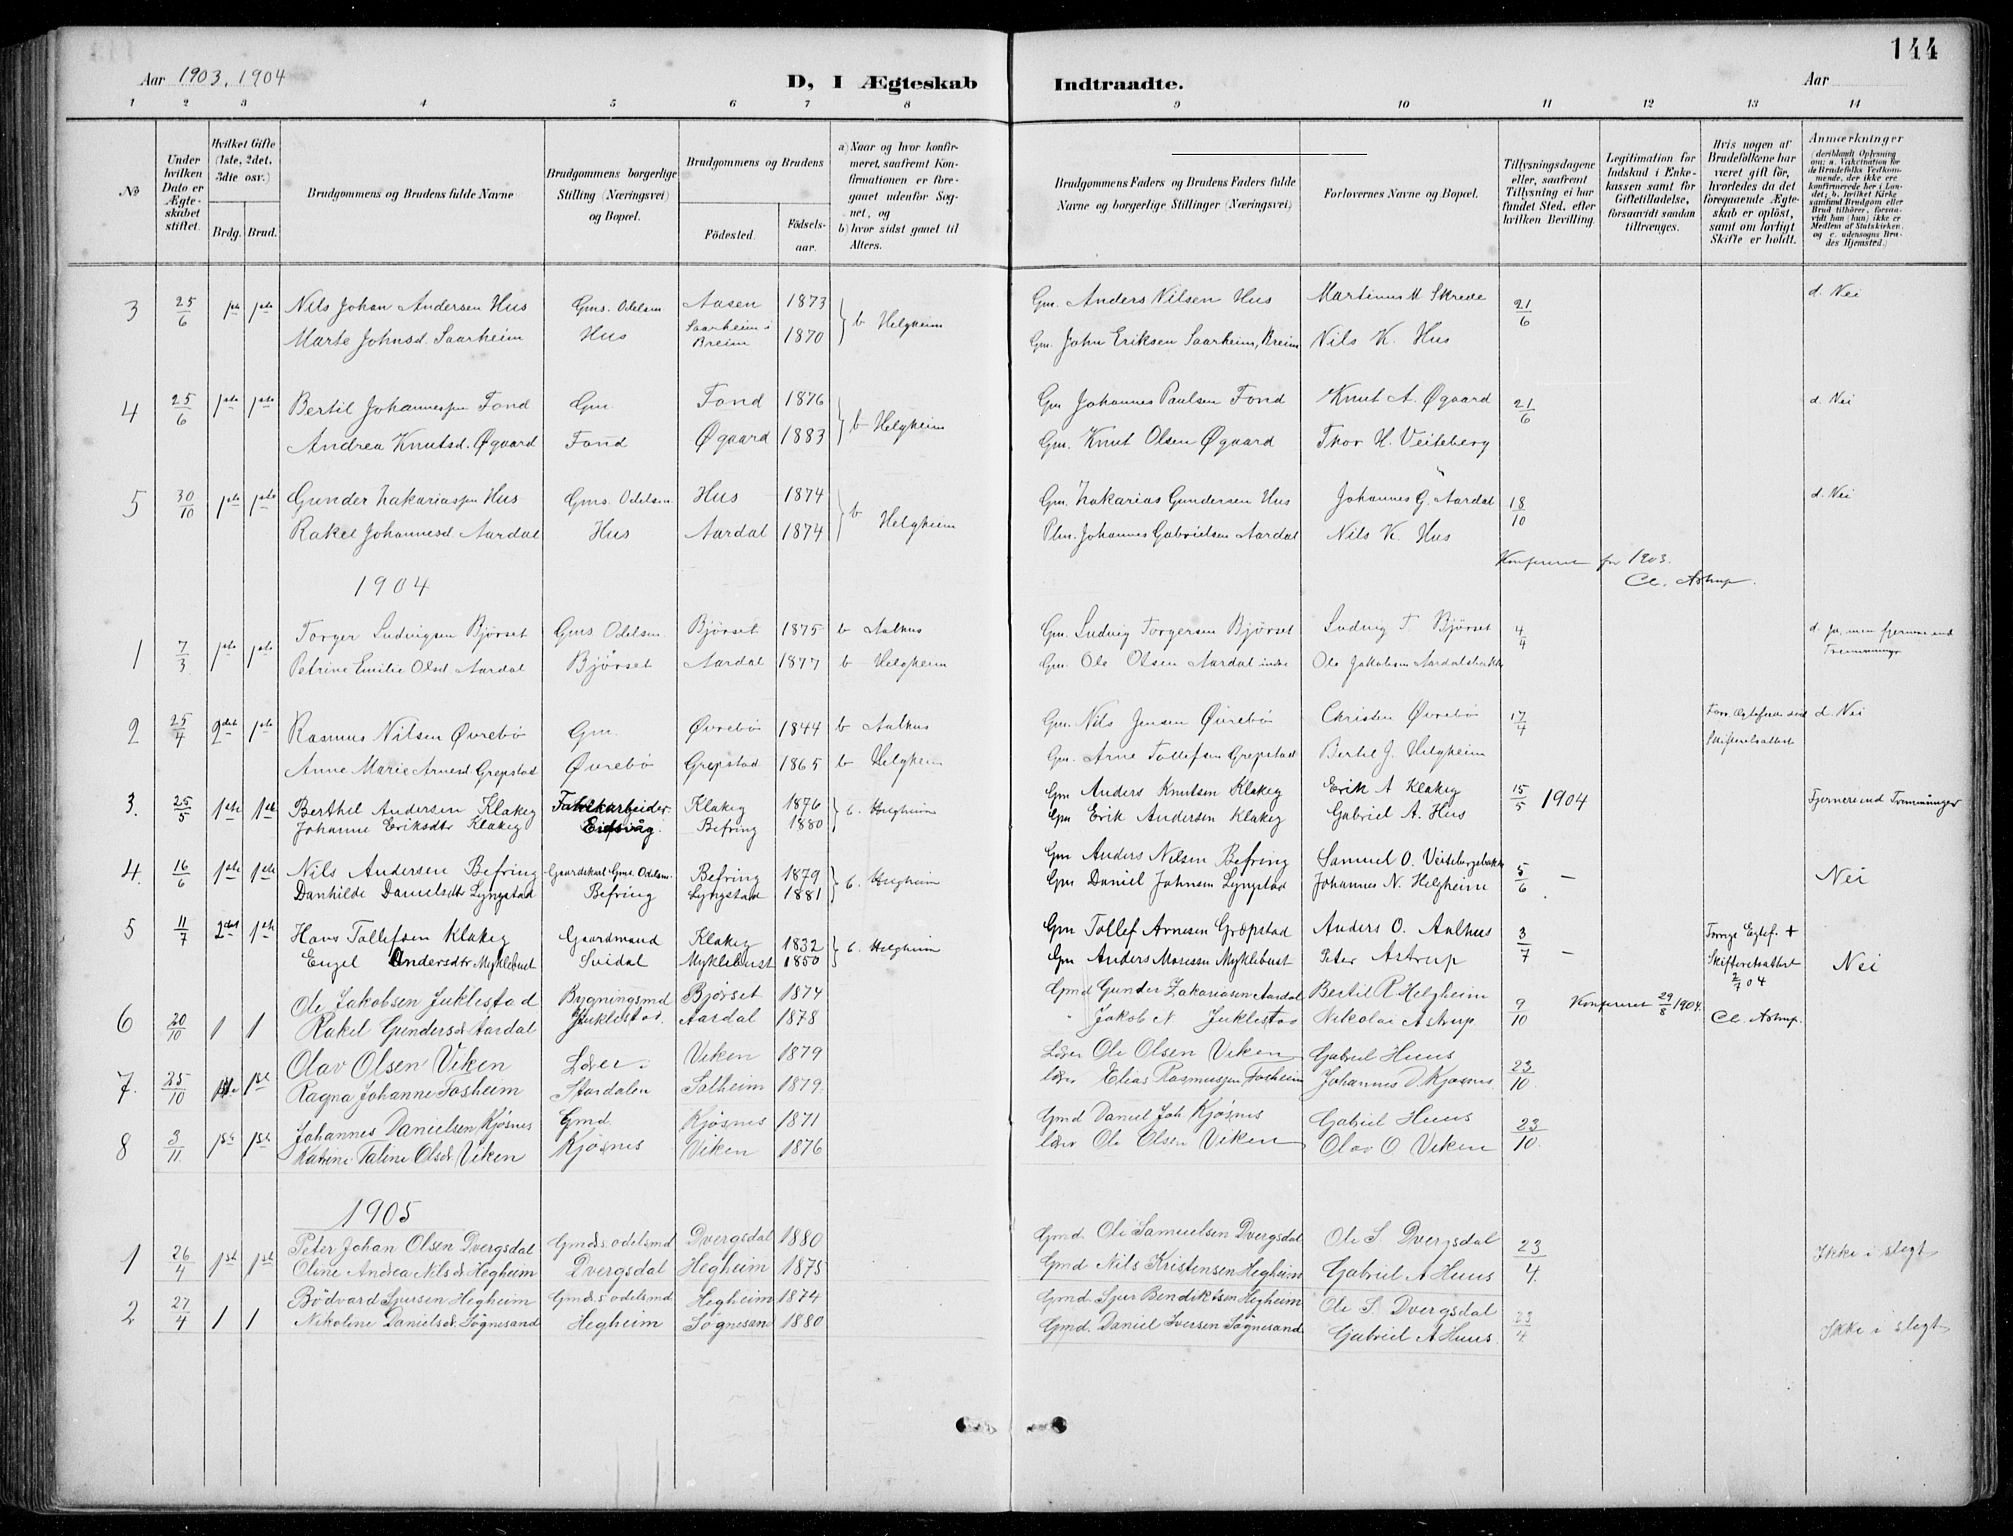 144
Aar 1903. 1904
D, I Ægteskab Indtraadte.
Aar
1 2 3 4 5 6 7 8 9 10 11 12 13 14
No
Under hvilken Dato er Ægteskabet stiftet.
Hvilket Gifte (1ste, 2det, 3die osv.)
Brdg. Brud.
Brudgommens og Brudens fulde Navne
Brudgommens borgerlige Stilling (Næringsvei) og Bopæl.
Brudgommens og Brudens
Fødested. Fødselsaar.
a) Naar og hvor konfirmeret, saafremt Konfirmationen er foregaaet udenfor Sognet, og
b) hvor sidst gaaet til Alters.
Brudgommens Faders og Brudens Faders fulde Navne og borgerlige Stillinger (Næringsvei)
Forlovernes Navne og Bopæl.
Tillysningsdagene eller, saafremt Tillysning ei har fundet Sted, efter hvilken Bevilling
Legitimation for Indskud i Enkekassen samt for Giftetilladelse, forsaavidt saadan tiltrænges.
Hvis nogen af Brudefolkene har været gift før, hvorledes da det foregaaende Ægteskab er opløst, samt om lovligt Skifte er holdt.
Anmærkninger (deriblandt Oplysning om: a. Vakcination for de Brudefolks Vedkommende, der ikke ere konfirmerede her i Landet; b. hvilket Kirkesamfund Brudgom eller Brud tilhører, forsaavidt han (hun) ikke er Medlem af Statskirken, og c. udensogns Brudes Hjemsted.)
3 25/6 1ste 1ste Nils Johan Andersen Hus Gms. Odelsm Aasen 1873 b Helgheim Gm. Anders Nilsen Hus Martinus M Skrede 21/6 d. Nei
Marte Johnsd. Saarheim Hus Saarheim i Breim 1870 Gm. John Eriksen Saarheim, Breim Nils K. Hus
4 25/6 1ste 1ste Bertil Johannessen Fond Gm. Fond 1876 b Helgheim Gm Johannes Paulsen Fond Knut A. Øgaard 21/6 d. Nei
Andrea Knutsd. Øgaard Fond Øgaard 1883 Gm. Knut Olsen Øgaard Thor H. Veiteberg
5 30/10 1ste 1ste Gunder Zakariassen Hus Gms. Odelsm. Hus 1874 b Helgheim Gm. Zakarias Gundersen Hus Johannes G. Aardal 18/10 d. Nei
Rakel Johannesd Aardal Hus Aardal 1874 Plm. Johannes Gabrielsen Aardal Nils K. Hus
Konfereret for 1903.
Cl. Astrup.
1904
1 7/3 1ste 1ste Torger Ludvigsen Bjørset Gms. Odelsm. Bjørset 1875 b Aalhus Gm. Ludvig Torgersen Bjørset Ludvig T Bjørset 4/4 d. Ja, men fjernere end Tremenninger
Petrine Emilie Olsd. Aardal Bjørset Aardal 1877 b Helgheim Gm. Ole Olsen Aardal indre Ole Jakobsen Aardalsbakke
2 25/4 2det 1ste Rasmus Nilsen Øvrebø Gm. Øvrebø 1844 b Aalhus Gm. Nils Jensen Øvrebø Christen Øvrebø 17/4 Skifteretsattest d. Nei
Anne Marie Arnesd Grepstad Øvrebø Grepstad 1865 b Helgheim Gm. Arne Tollefsen Grepstad Bertil J. Helgheim
3. 25/5 1ste 1ste Berthel Andersen Klakeg Fabrikarbeider Klakeg 1876 b. Helgheim Gm Anders Knutsen Klakeg Erik A Klakeg 15/5 1904 Fjernere end Tremninger
Johanne Eriksdtr Klakeg Eidsvåg. Befring 1880 Gm Erik Andersen Klakeg Gabriel A. Hus
4. 16/6 1ste 1ste Nils Andersen Befring Gaardbrut. Gms. Odelsm. Befring 1879 b. Helgheim Gm Anders Nilsen Befring Samuel O. Veitebergsbakke 5/6 — Nei
Danhilde Danielsdtr Lyngstad Befring Lyngstad 1881 Gm Daniel Johnsen Lyngstad Johannes N. Helgheim
5 11/7 2det 1ste Hans Tollefsen Klakeg Gaardmand Klakeg 1832 b. Helgheim Gm Tollef Arnesen Grepstad Anders O. Aalhus 3/7 — Forrige Egtef. + Skifteretsattest 2/7 04 Nei
Engel Andersdtr Myklebust Svidal Myklebust 1850 Gm Anders Mosessn Myklebust Peter Astrup
6 30/10 1 1 Ole Jakobsen Juklestad Bygningsmd Bjørset 1874 Gmd Gunder Zakariasen Aardal Bertil R Helgheim 9/10 Konfereret 29/8 1904.
Rakel Gundersd Aardal Juklestad. Aardal 1878 " Jakob N. Juklestad Nikolai Astrup. Cl. Astrup.
7. 25/10 1ste 1st Olav Olsen Viken Lærer i Viken 1879 Lærer Ole Olsen Viken Gabriel Huus 23/10.
Ragna Johanne Fosheim Stardalen Solheim 1879. lærer Elias Rasmussen Fosheim Johannes D. Kjøsnes
8 3/11 1st 1st Johannes Danielsen Kjøsnes Gmd. Kjøsnes 1871 Gmd Daniel Joh. Kjøsnes Gabriel Huus 23/10.
Katrine Taline Olsdr Viken Kjøsnes Viken 1876 lærer Ole Olsen Viken Olav O. Viken
1905
1 26/4 1st 1st Peter Johan Olsen Dvergsdal Gmds odelsmd Dvergsdal 1880 Gmd. Ole Samuelsen Dvergsdal Ole S. Dvergsdal 23/4. Ikke i slegt
Oline Andrea Nilsdr Hegheim Dvergsdal Hegheim 1875 Gmd Nils Kristensen Hegheim Gabriel A Huus
2 27/4 1 1 Bødvard Spursen Hegheim Gmds odelsmd Hegheim 1874 Gmd. Spur Bendiktsen Hegheim Ole S. Dvergsdal 23/4 Ikke i slegt
Nikoline Danielsdr. Søgnesand Hegheim Søgnesan 1880 Gmd. Daniel Iversen Søgnesand Gabriel A Huus.